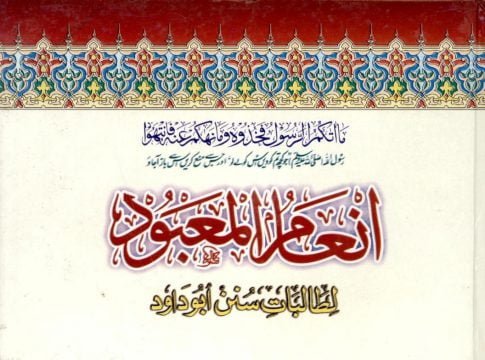 ما اتكم الرسول فخذوه وما نهكم عنه فانتهوا
رسول اللہ صلی اللہ علیہ وسلم جو کچھ تم کو دیں اس کو لے لو اور جس سے منع کریں اس سے باز آجاؤ
انعام المعبود
لطالبات سنن ابوداود